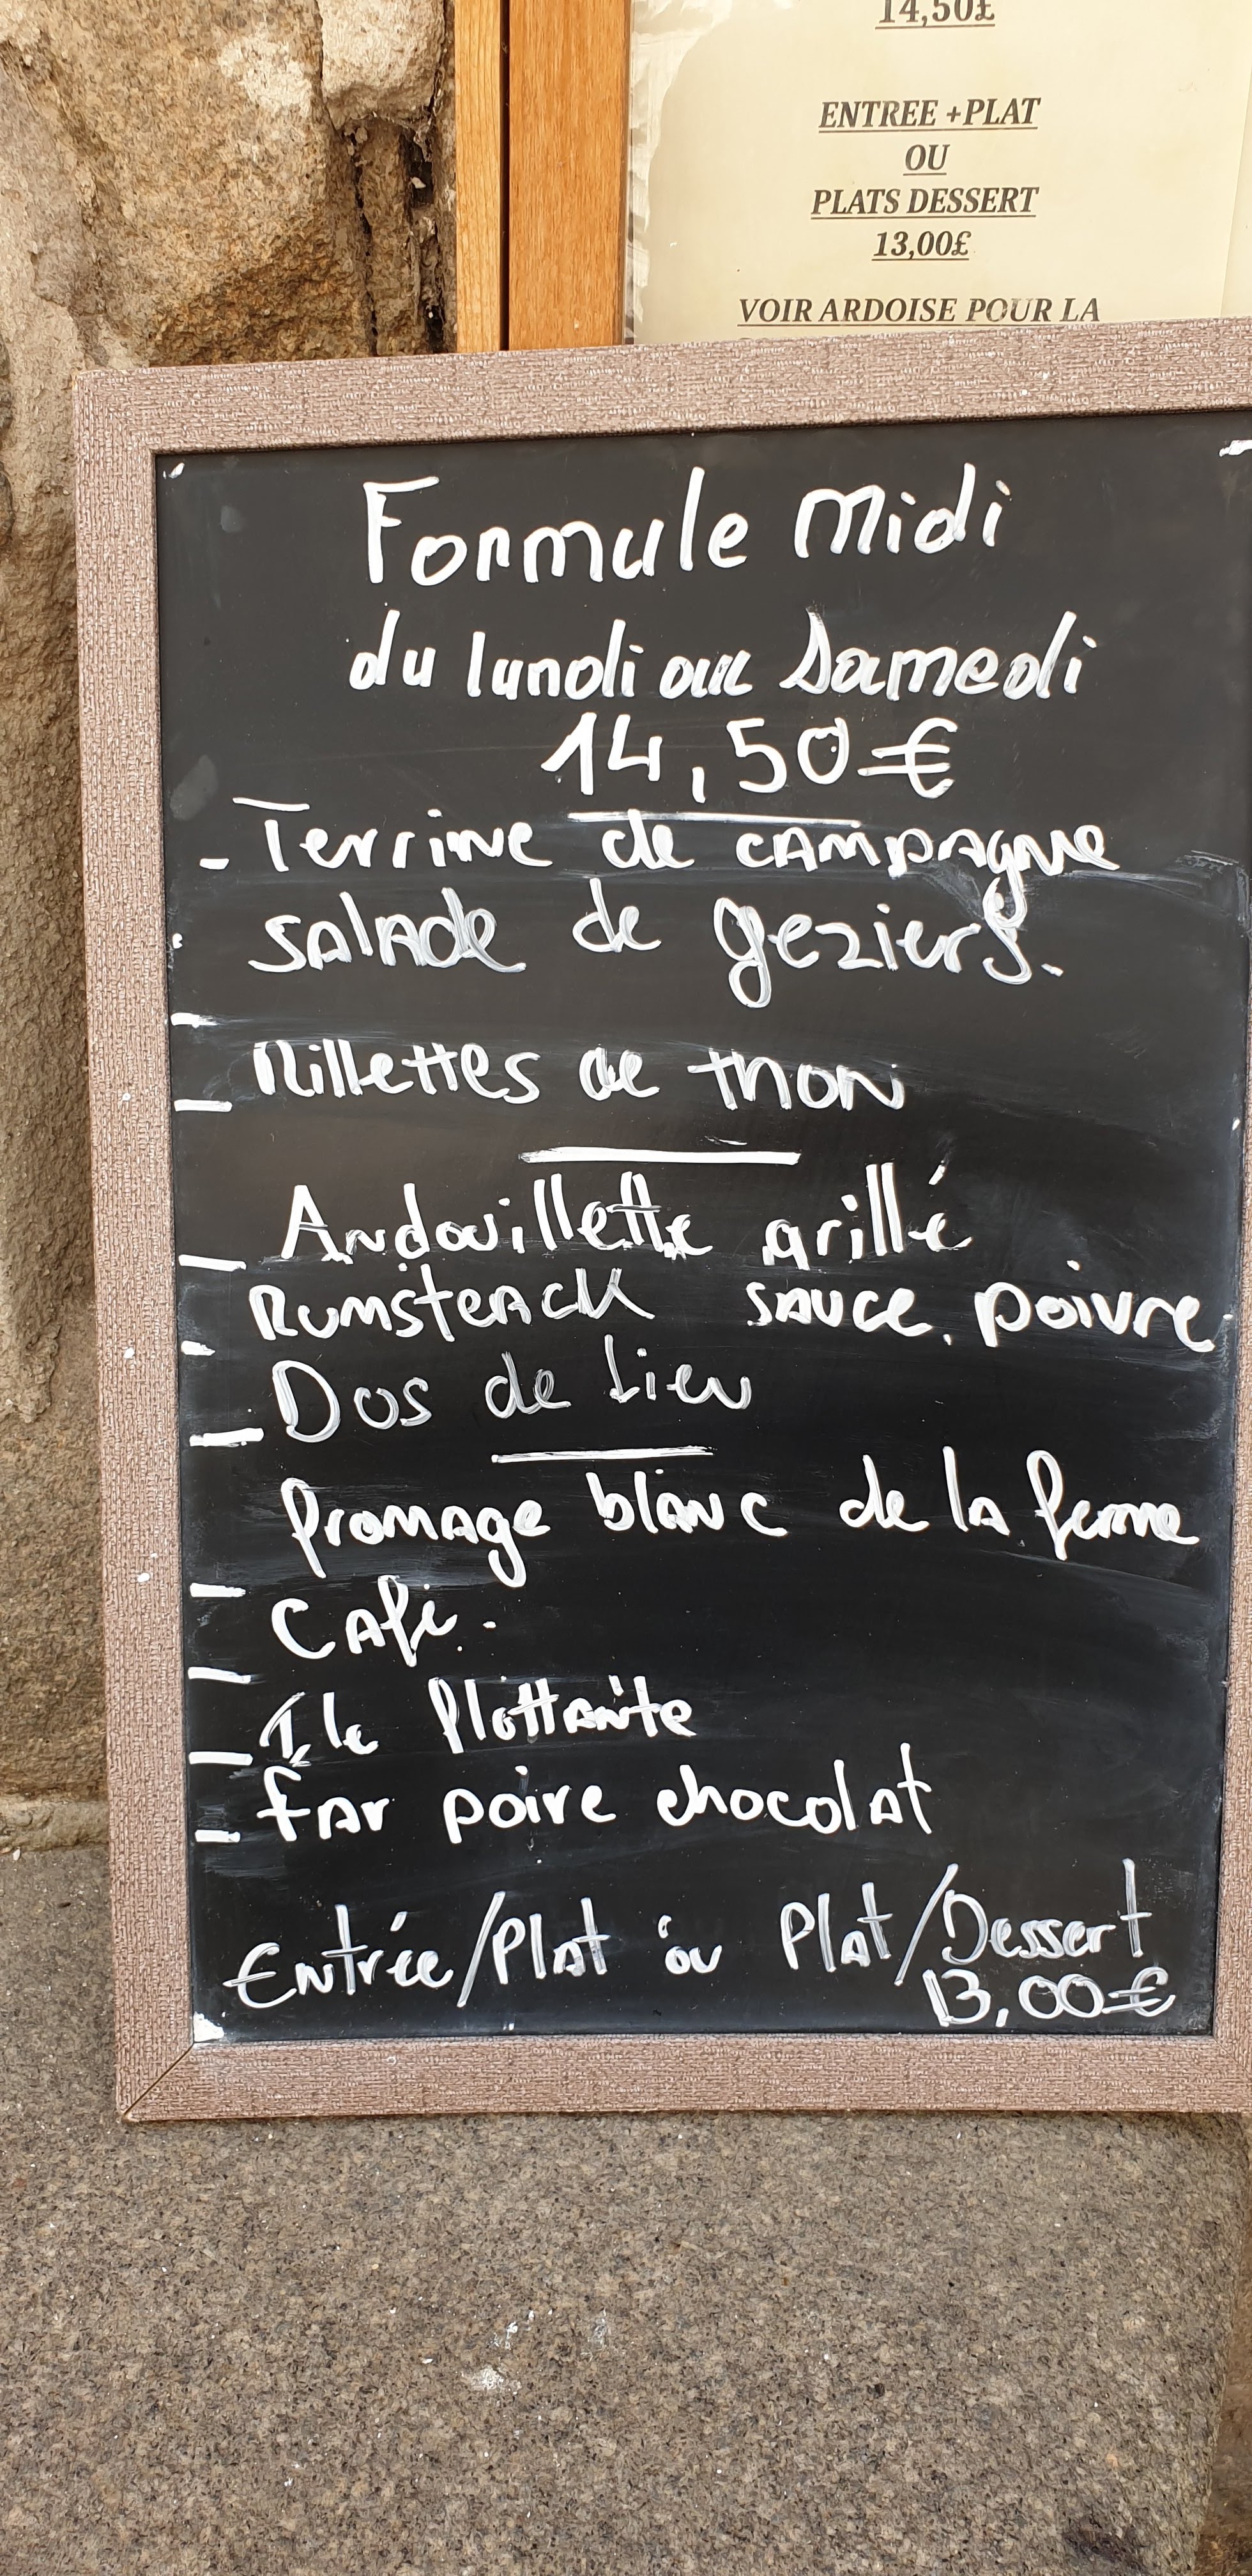 14,50£
ENTREE +PLAT
OU
PLATS DESSERT
13,00£
VOIR ARDOISE POUR LA
Formule Midi
du lundi au Samedi
14,50€
- Terrine de campagne
salade de geziers.
- Rillettes de thon
- Andouillette grillé
- Rumsteack sauce poivre
- Dos de Lieu
- fromage blanc de la ferme
- Café.
- Ile flottante
- far poire chocolat
Entrée/Plat ou Plat/Dessert
13,00€